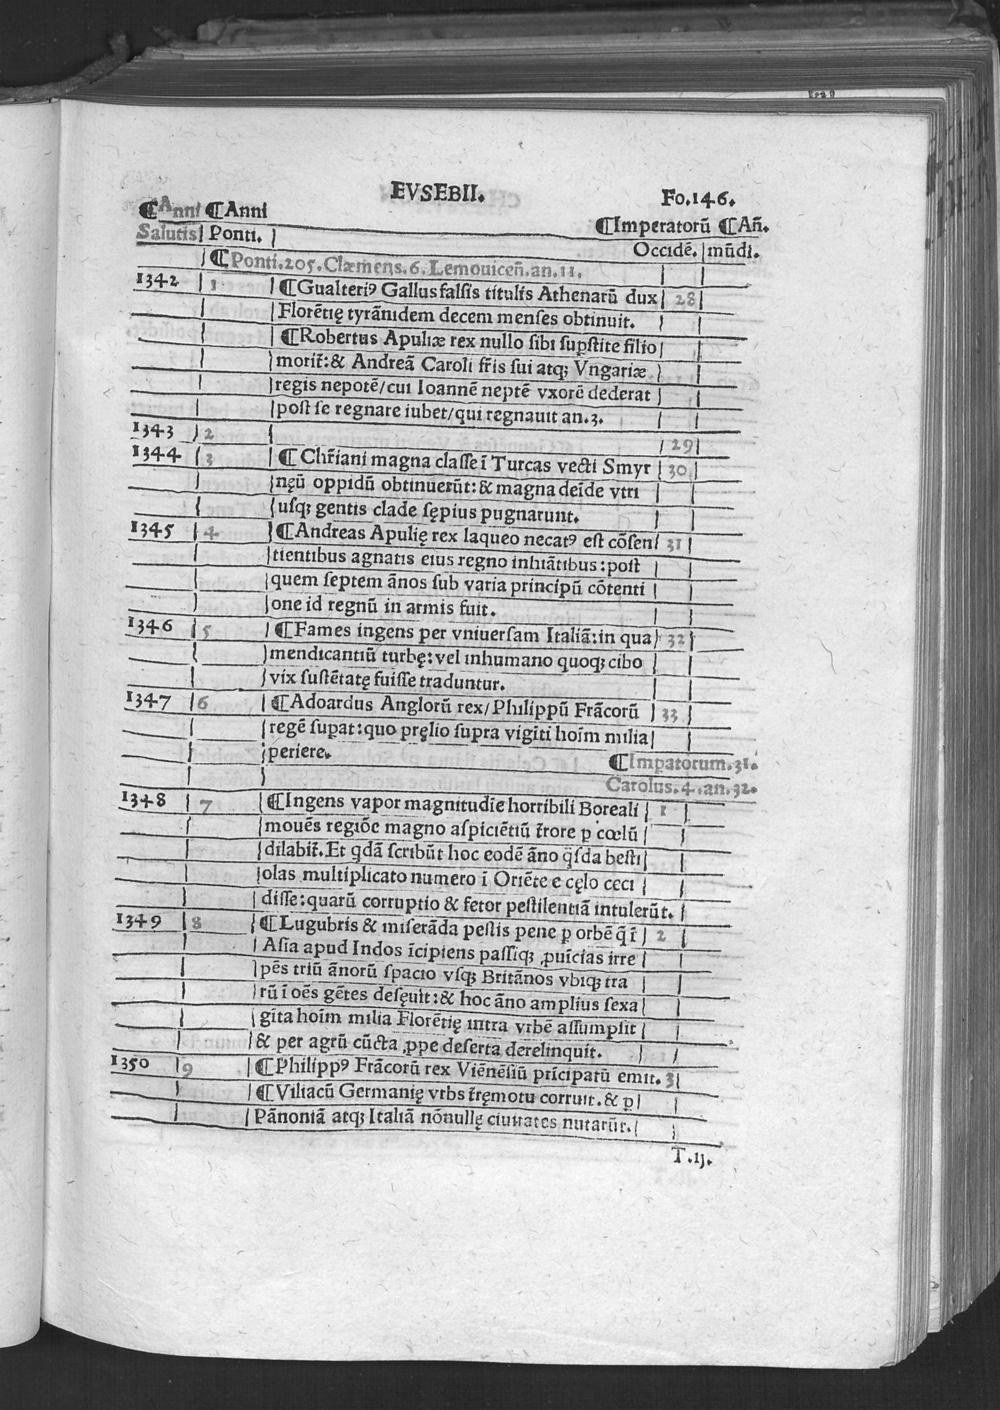 EVSEBII. Fo.146.
⸿Anni ⸿Anni ⸿Imperatorū ⸿Añ.
Salutis Ponti. Occidē. mūdi.
⸿Ponti.205.Clæmens.6.Lemouiceñ.an.11.
1342 1 ⸿Gualteriꝰ Gallus falsis titulis Athenarū dux 28
Florētię tyrānidem decem menses obtinuit.
⸿Robertus Apuliæ rex nullo sibi supstite filio
morit̃:& Andreā Caroli fr̃is sui atq; Vngariæ
regis nepotē/cui Ioannē neptē vxorē dederat
post se regnare iubet/qui regnauit an.3.
1343 2 29
1344 3 ⸿Chr̃iani magna classe ī Turcas vecti Smyr 30
nęū oppidū obtinuerūt:& magna deīde vtri
usq; gentis clade sępius pugnarunt.
1345 4 ⸿Andreas Apulię rex laqueo necatꝰ est cōsen 31
tientibus agnatis eius regno inhiātibus:post
quem septem ānos sub varia principū cōtenti
one id regnū in armis fuit.
1346 5 ⸿Fames ingens per vniuersam Italiā:in qua 32
mendicantiū turbę:vel inhumano quoq; cibo
vix sustētatę fuisse traduntur.
1347 6 ⸿Adoardus Anglorū rex/Philippū Frācorū 33
regē supat:quo pręlio supra vigīti hoīm milia
periere. ⸿Impatorum.31.
Carolus.4.an.32.
1348 7 ⸿Ingens vapor magnitudīe horribili Boreali 1
mouēs regiōe magno aspiciētiū t̃rore p cœlū
dilabit̃.Et qdā scribūt hoc eodē āno q̃sda besti
olas multiplicato numero ī Oriēte e cęlo ceci
disse:quarū corruptio & fetor pestilentiā intulerūt.
1349 8 ⸿Lugubris & miserāda pestis pene p orbē q̄ ī 2
Asia apud Indos īcipiens passiq; ꝓuīcias irre
pēs triū ānorū spacio vsq; Britānos vbiq; tra
rū ī oēs gētes deseuit:& hoc āno amplius sexa
gīta hoīm milia Florētię intra vrbē assumpsit
& per agrū cūcta ꝓpe deserta derelinquit.
1350 9 ⸿Philippꝰ Frācorū rex Viēnēsiū prīcipatū emit. 3
⸿Viliacū Germanię vrbs t̃ręmotu corruit.& p
Pānoniā atq; Italiā nōnullę ciuitates nutarūt.
T.ij.